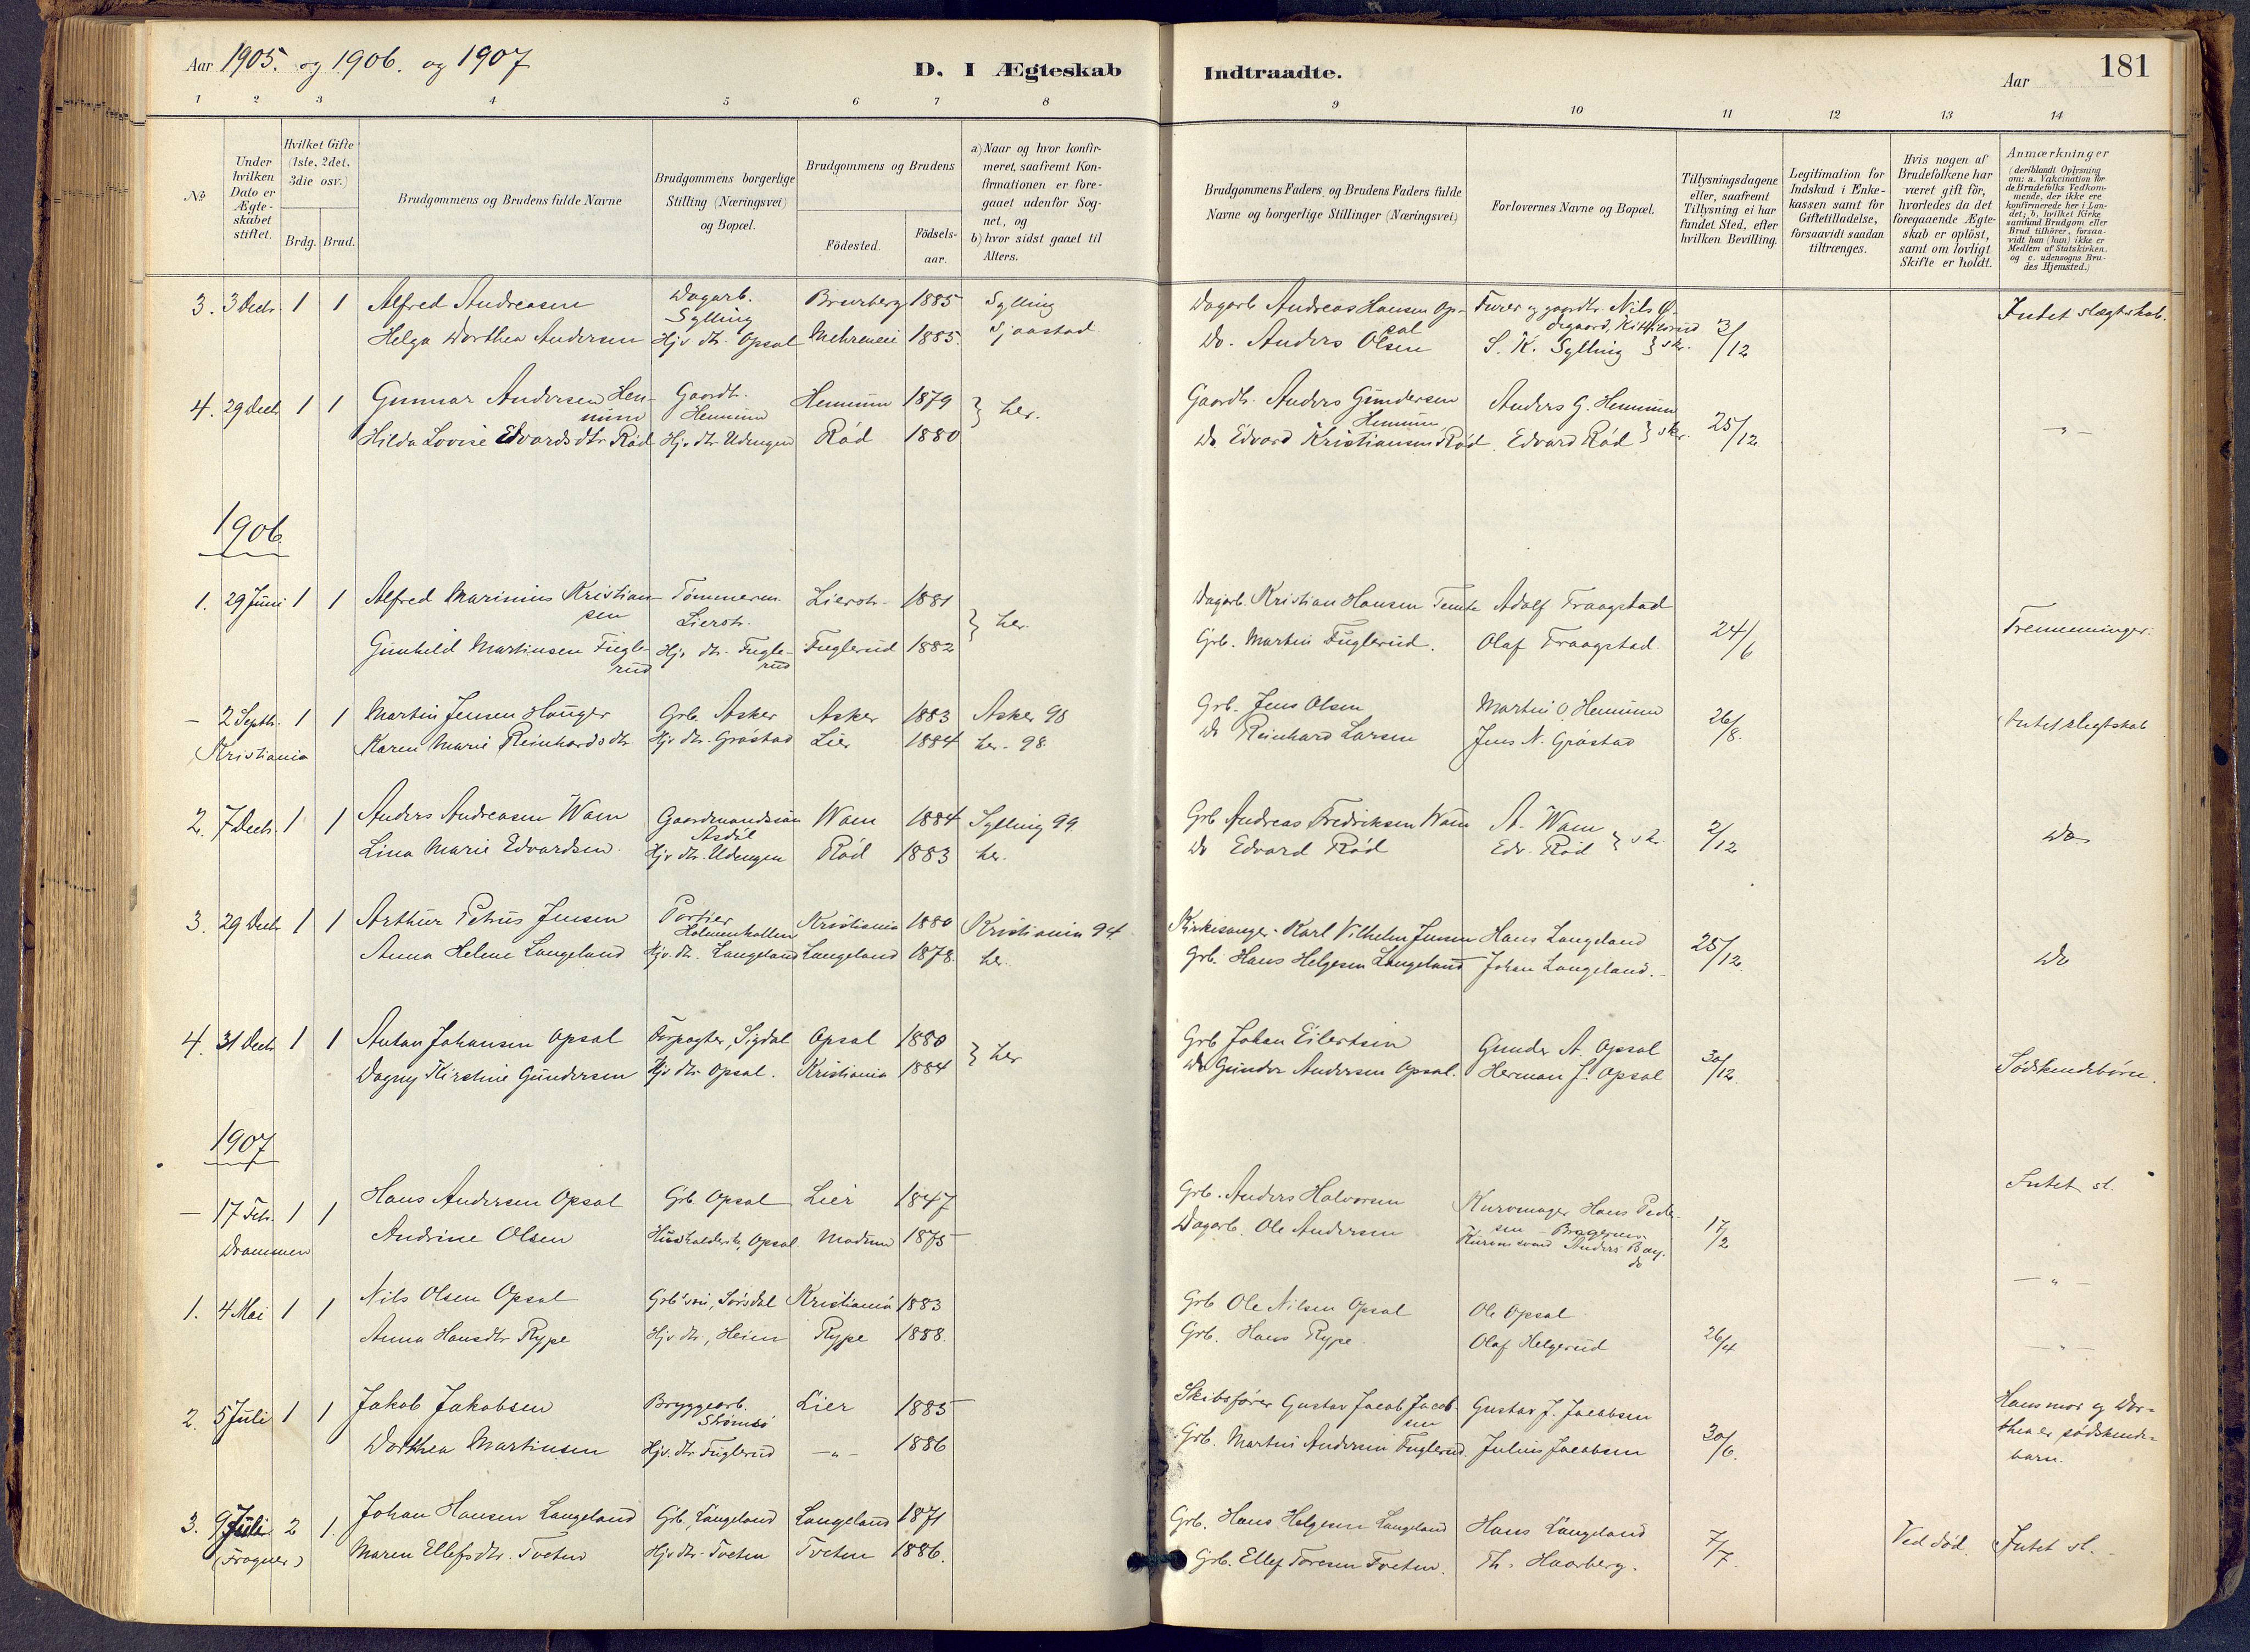 Aar 1905. og 1906. og 1907
D. I Ægteskab Indtraadte.
Aar
181
1 2 3 4 5 6 7 8 9 10 11 12 13 14
No
Under hvilken Dato er Ægteskabet stiftet.
Hvilket Gifte (1ste, 2det, 3die osv.)
Brdg. Brud.
Brudgommens og Brudens fulde Navne
Brudgommens borgerlige Stilling (Næringsvei) og Bopæl.
Brudgommens og Brudens
Födested.
Födsels-aar.
a) Naar og hvor konfirmeret, saafremt Konfirmationen er foregaaet udenfor Sognet, og
b) hvor sidst gaaet til Alters.
Brudgommens Faders og Brudens Faders fulde Navne og borgerlige Stillinger (Næringsvei)
Forlovernes Navne og Bopæl.
Tillysningsdagene eller, saafremt Tillysning ei har fundet Sted, efter hvilken Bevilling.
Legitimation for Indskud i Enkekassen samt for Giftetilladelse, forsaavidt saadan tiltrænges.
Hvis nogen af Brudefolkene har været gift för, hvorledes da det foregaaende Ægteskab er oplöst, samt om lovligt Skifte er holdt.
Anmærkninger (deriblandt Oplysning om: a. Vakcination for de Brudefolks Vedkommende, der ikke ere konfirmerede her i Landet; b. hvilket Kirkesamfund Brudgom eller Brud tilhörer, forsaavidt han (hun) ikke er Medlem af Statskirken, og c. udensogns Brudes Hjemsted.)
3. 3 Decb. 1 1 Alfred Andreasen Dagarb. Sylling 1885 Sylling Dagarb Andreas Hansen Opsal Furer og gaardbr. Nils Ødegaard, Kittilsrud 3/12 Intet slægtskab.
Helga Dorthea Andersen Hjv dtr. Opsal Mehrenei 1885. Sjaastad Do. Anders Olsen S. K. Sylling } skr.
4. 29 Decb 1 1 Gunnar Andersen Hennum Gaardb. Hennum Hennum 1879 } her. Gaardb. Anders Gundersen Hennum Anders G. Hennum 25/12 — " —
Hilda Lovise Edvardsdtr Rød Hjv dtr Udengen Rød 1880 Do Edvard Kristiansen Rød. Edvard Rød } skr.
1906.
1. 29 Juni 1 1 Alfred Marinius Kristiansen Tømmerm. Lierstr. Lierstr. 1881 } her. Dagarb. Kristian Hansen Temte Adolf Fraagstad 24/6 Tremenninger.
Gunhild Martinsen Fuglerud Hjv dtr. Fuglerud Fuglerud 1882 Grb. Martin Fuglerud. Olaf Fraagstad.
— 2 Septb. 1 1 Martin Jensen Hauger Grb. Asker Asker 1883 Asker 98 Grb. Jens Olsen Martin O. Hennum 26/8. Intet slegtskab
Kristiania Karen Marie Reinhardsdtr. Hjv dtr. Grøstad Lier 1884 her - 98. Do Reinhard Larsen Jens N. Grøstad
2. 7 Decb. 1 1 Anders Andreasen Waen Gaardmandssøn Asdøl Waen 1884 Sylling 99 Grb Andreas Fredriksen Waen A. Waen 2/12 Do
Lina Marie Edvardsen. Hjv dtr. Udengen Rød 1883 her. Do Edvard Rød Edv. Rød } skr.
3. 29 Decb 1 1 Arthur Petrus Jensen Portier Holmenkollen Kristiania 1880 Kristiania 94. Kirkesanger. Karl Vilhelm Jensen Hans Langeland 25/12. Do
Anna Helene Langeland Hjv. dtr. Langeland Langeland 1878. her. Grb. Hans Helgesen Langeland Johan Langeland.
4. 31 Decb 1 1 Anton Johansen Opsal Forpagter, Sigdal Opsal 1880 } her Grb Johan Eilertsen Gunder A. Opsal 30/12. Sødskendebørn.
Dagny Kirstine Gundersen Hjv dtr Opsal. Kristiania 1884 Do Gunder Andersen Opsal. Herman J. Opsal
1907
— 17 Feb. 1 1 Hans Andersen Opsal Grb. Opsal Lier 1847 Grb. Anders Halvorsen Kurvmager Hans Pedersen Bragernes 17/2 Intet sl.
Drammen Andrine Olsen Husholderske, Opsal Modum 1875 Dagarb. Ole Andersen Anders Bay. do
1. 4 Mai 1 1 Nils Olsen Opsal Grb søn, Sørsdal Kristiania 1883 Grb Ole Nilsen Opsal Ole Opsal 26/4 — " —
Anna Hansdtr Rype Hjv dtr, Heim Rype 1888. Grb. Hans Rype. Olaf Helgerud — " —
2. 5 Juli 1 1 Jakob Jakobsen Bryggearb. Strømsø Lier 1885 Skibsfører Gustav Jacob Jacobsen Gustav J. Jacobsen 30/6. Hans mor og Dorthea er sødskendebarn.
Dorthea Martinsen Hjv. dtr Fuglerud — " — 1886 Grb. Martin Andersen Fuglerud. Julius Jacobsen
3. 9 Juli 2 1. Johan Hansen Langeland Grb. Langeland Langeland 1871 Grb. Hans Helgesen Langeland Hans Langeland 7/7. Ved død. Intet sl.
(Frogner) Maren Ellefsdtr. Tveten Hjv dtr. Tveten Tveten 1886. Grb. Ellef Toresen Tveten. Th. Haarberg.